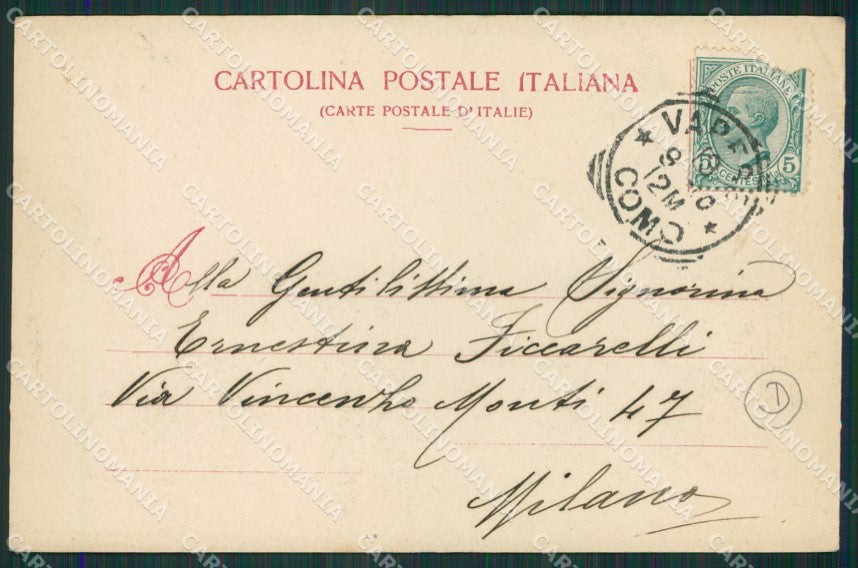 CARTOLINA POSTALE ITALIANA
(CARTE POSTALE D'ITALIE)
POSTE ITALIANE
5 CENT. 5
COMO
12M
Alla Gentilissima Signorina
Ernestina Ficcarelli
Via Vincenzo Monti 47
Milano
CARTOLINOMANIA